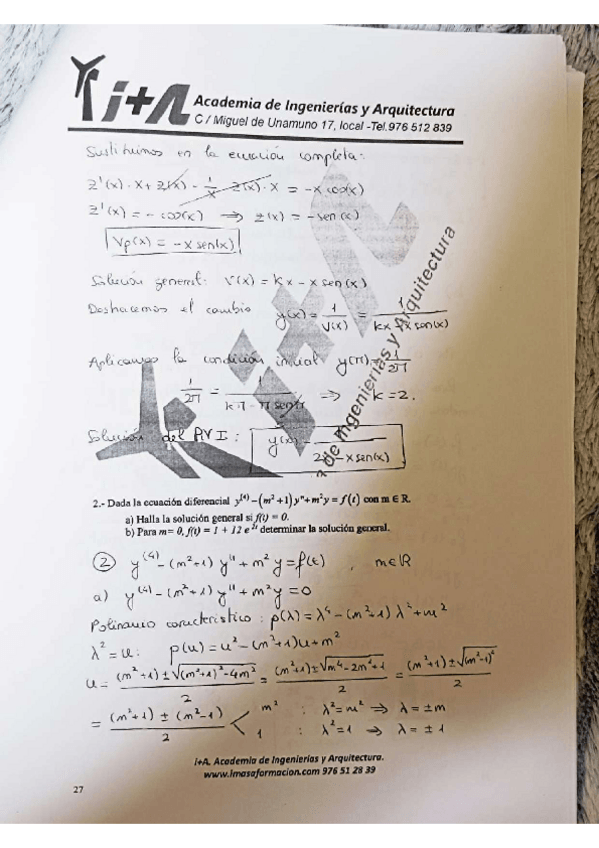 i+A Academia de Ingenierías y Arquitectura
C / Miguel de Unamuno 17, local -Tel.976 512 839
Sustituimos en la ecuación completa:
z'(x)·x + z(x) - 1/x z(x)·x = -x cos(x)
z'(x) = - cos(x) ⇒ z(x) = - sen(x)
Vp(x) = -x sen(x)
Solución general: V(x) = kx - x sen(x)
Deshacemos el cambio y(x) = 1/V(x) = 1/(kx - x sen(x))
Aplicamos la condición inicial y(π) = 1/2π
1/2π = 1/(kπ - π senπ) ⇒ k = 2.
Solución del PVI: y(x) = - x sen(x)
de Ingenierías y Arquitectura
2.- Dada la ecuación diferencial y⁽⁴⁾-(m²+1)y''+m²y = f(t) con m ∈ R.
a) Halla la solución general si f(t) = 0.
b) Para m= 0, f(t) = 1 + 12 e²ᵗ determinar la solución general.
② y⁽⁴⁾-(m²+1) y'' + m² y = f(t) , m∈R
a) y⁽⁴⁾-(m²+1) y'' + m² y = 0
Polinomio característico: p(λ) = λ⁴ - (m²+1) λ² + m²
λ² = u: p(u) = u² - (m²+1)u + m²
u = ((m²+1) ± √((m²+1)²-4m²))/2 = ((m²+1) ± √(m⁴-2m²+1))/2 = ((m²+1) ± √(m²-1)²)/2
= ((m²+1) ± (m²-1))/2 < m² : λ² = m² ⇒ λ = ± m
1 : λ² = 1 ⇒ λ = ± 1
i+A. Academia de Ingenierías y Arquitectura.
www.imasaformacion.com 976 51 28 39
27